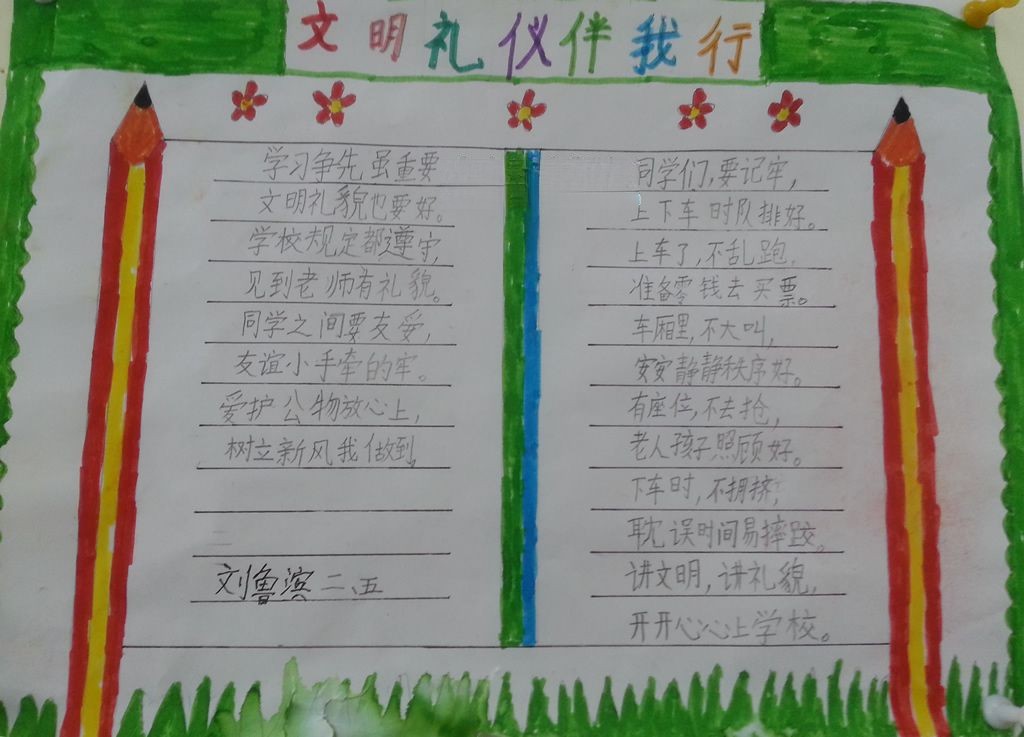 文明礼仪伴我行
学习争先虽重要
文明礼貌也要好。
学校规定都遵守,
见到老师有礼貌。
同学之间要友爱,
友谊小手牵的牢。
爱护公物放心上,
树立新风我做到。
刘鲁滨 二、五
同学们,要记牢,
上下车时队排好。
上车了,不乱跑,
准备零钱去买票。
车厢里,不大叫,
安安静静秩序好。
有座位,不去抢,
老人孩子照顾好。
下车时,不拥挤,
耽误时间易摔跤。
讲文明,讲礼貌,
开开心心上学校。